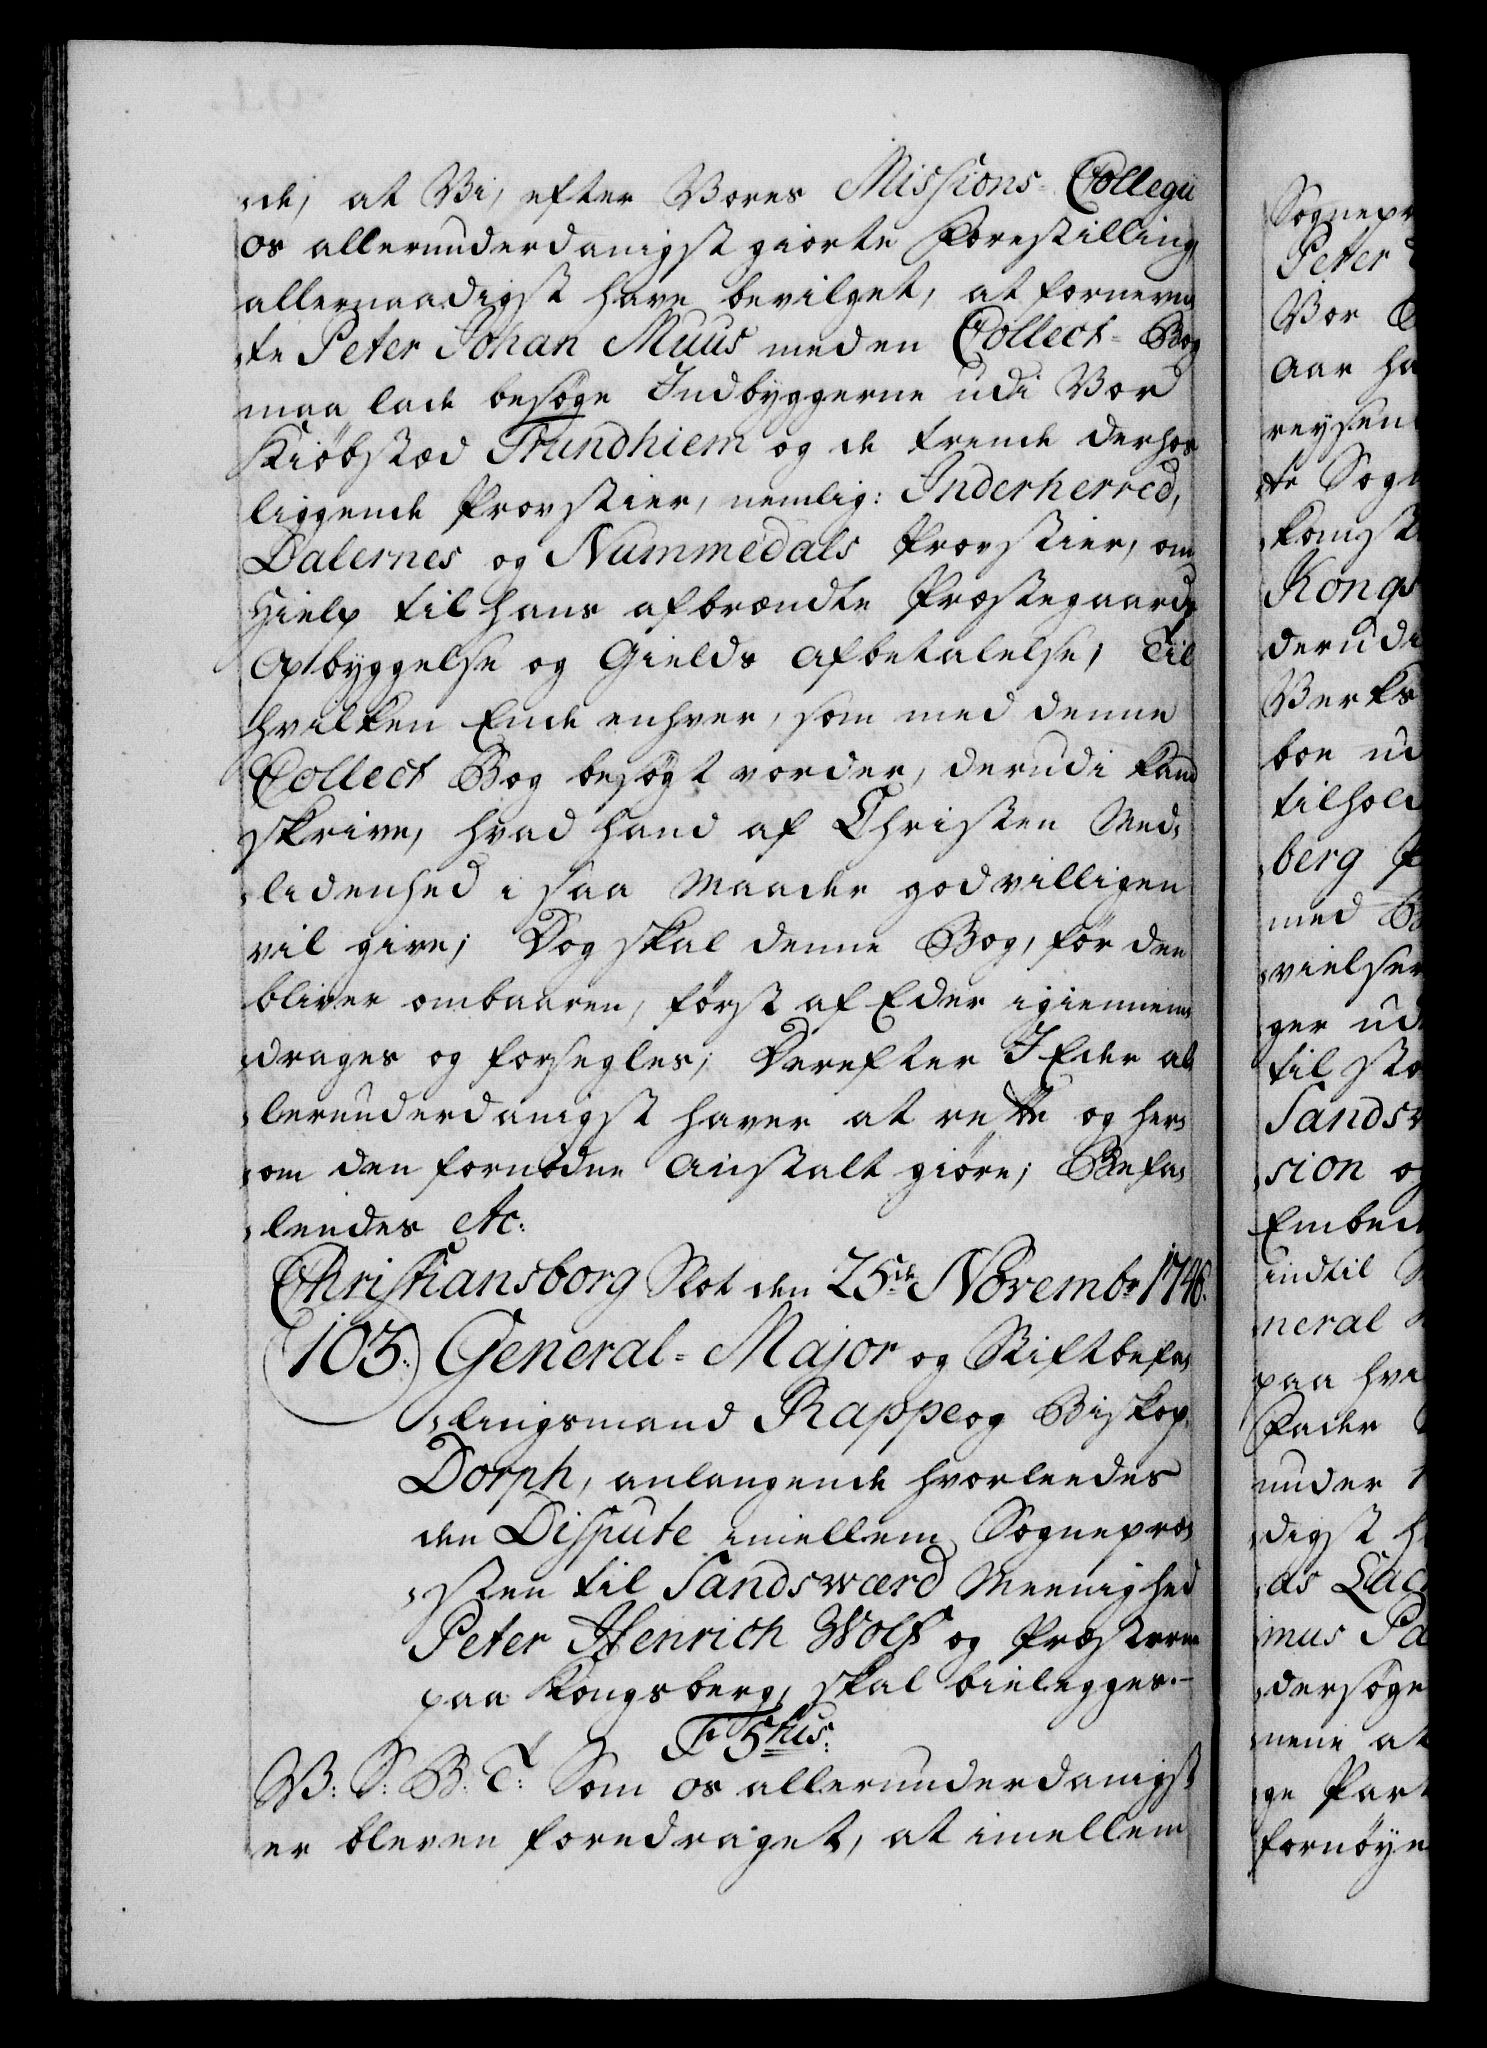 de, at Vi, efter Vores Missions-Collegii
os allerunderdanigst giorte Forestilling
allernaadigst have bevilget, at fornevn
te Peter Johan Muus med en Collect-Bog
maa lade besøge Indbyggerne udi Vor
Kiøbstæd Trundhiem og de trende derhos
liggende Provstier, nemlig: Inderherred,
Dalernes og Nummedals Provstier, om
Hielp til hans afbrændte Præstegaards
Opbyggelse og Gields Afbetalelse; Til
hvilken Ende enhver, som med denne
Collect Bog besøgt vorder, derudi kand
skrive, hvad hand af Christen Med-
lidenhed i saa Maader godvilligen
vil give; Dog skal denne Bog, før den
bliver ombaaren, først af Eder igiennem
drages og forsegles; Derefter I Eder al
lerunderdanigst haver at rette og her-
om den fornødne Anstalt giøre; Befa-
lendes etc:
Christiansborg Slot den 25de Novembr 1746.
103. General-Major og Stiftbefa-
lingsmand Rappe og Biskop
Dorph, anlangende hvorledes
den Dispute imellem Sognepræ-
sten til Sandsværd Meenighed
Peter Henrich Wolf og Præsterne
paa Kongsberg, skal bielegges.-
F 5tus.
V: S: B: T: Som os allerunderdanigst
er bleven foredraget, at imellem
Sognepr
Peter
Vor
Aar ha
reysen
te Sog
komst
Kongs
derudi
Verks
boe ud
tilhold
berg P
med B
vielser
ger ud
til sto
Sandsv
sion og
Embed
indtil
neral
paa hvi
Fader
under
digst h
as Lac
mus Pa
dersøge
mene at
ge Part
fornøye